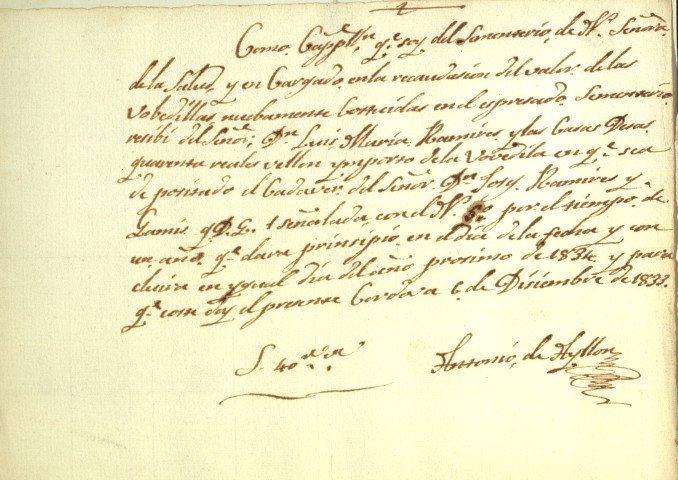 Como Cappⁿ qᵉ soy del Sementerio, de Nª Señora
de la Salud, y en Cargado en la recaudasion del valor de las
Vobedillas nuebamente Costruidas en el espresado Sementerio
resibi del Señor; Dⁿ Luis Maria Ramires y las Casas Desa
quarenta reales vellon ymporto de la Vovedilla en qᵉ se a
de positado el Cadaver del Señor Dⁿ Josef Ramires y
Gamis q. D. G. señalada con el Nº por el tiempo de
un año qᵉ dara prinsipio en el dia de la fecha y con
cluira en ygual dia del año procsimo de 1834 y para
qᵉ coste doy el presente Cordova 6 de Disiembre de 1833.
S. 40 rˢ vⁿ
Antonio de Ayllon